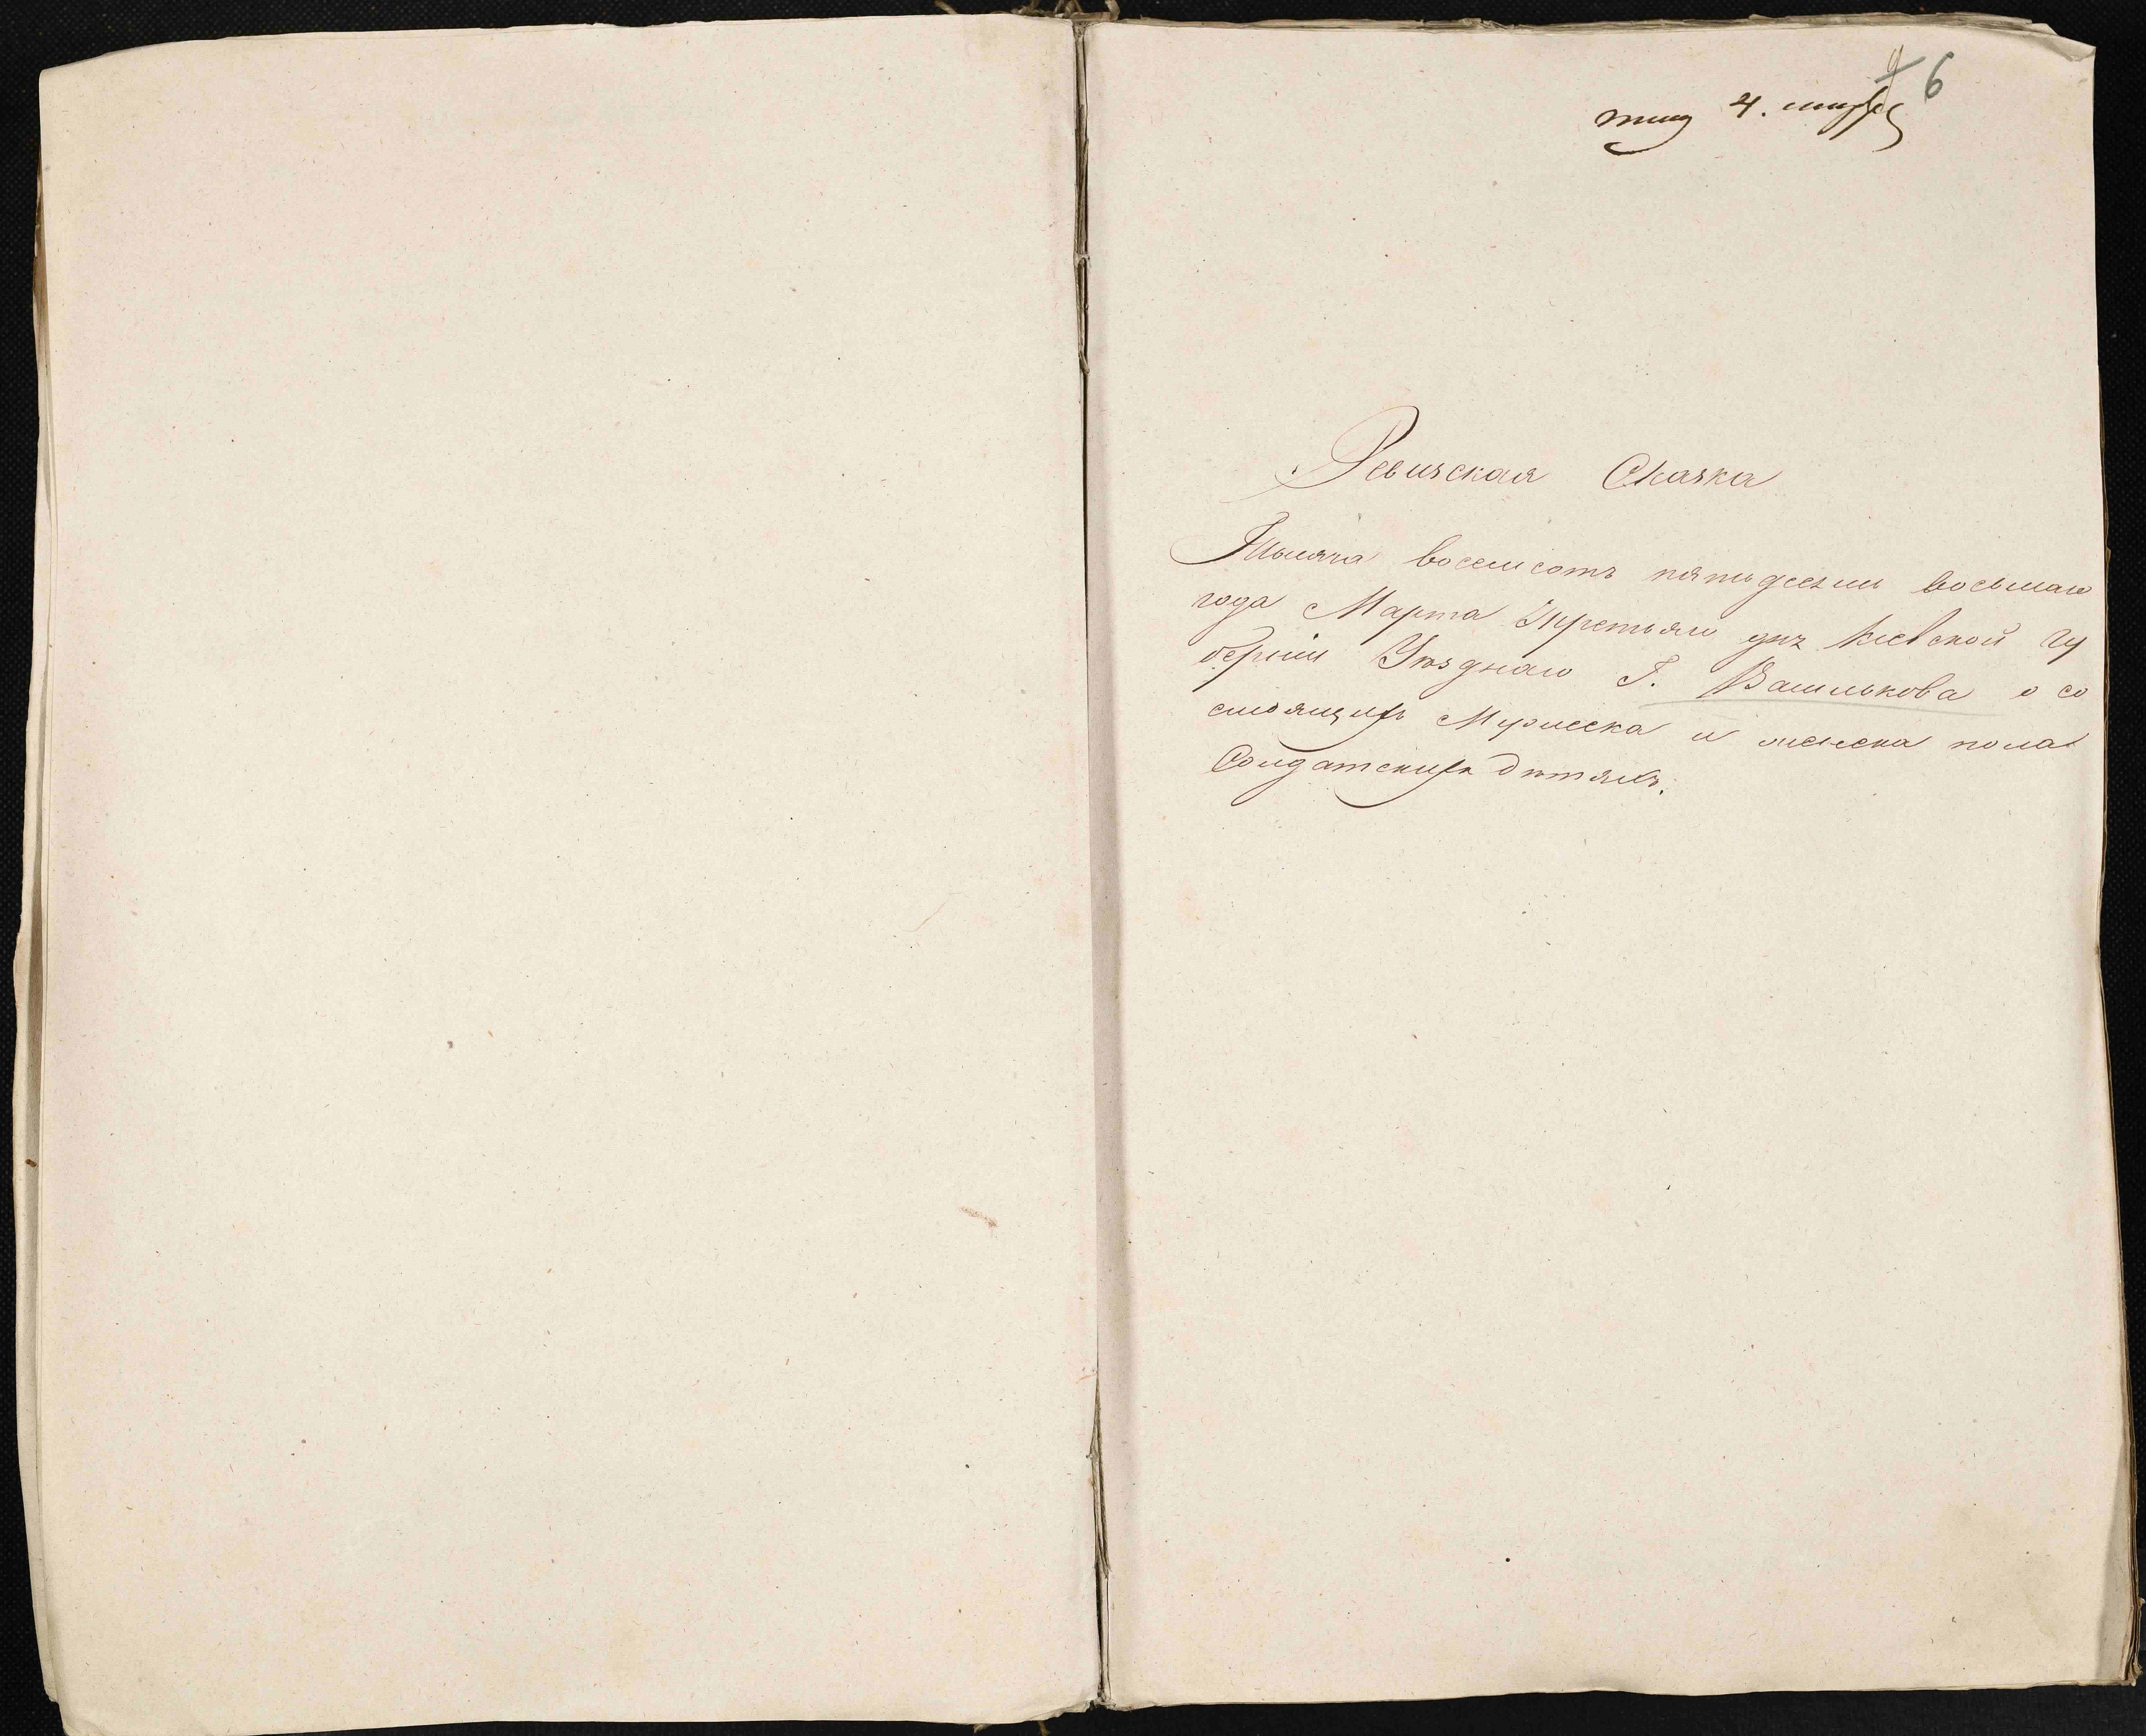 6
4.
Ревизская Сказка
Тысяча восемсотъ пятьдесятъ восьмаго
года Марта Третьяго дня Кіевской Гу
берніи Уѣзднаго Г. Василькова о со
стоящихъ Мужеска и женска пола
Солдатскихъ дѣтяхъ.